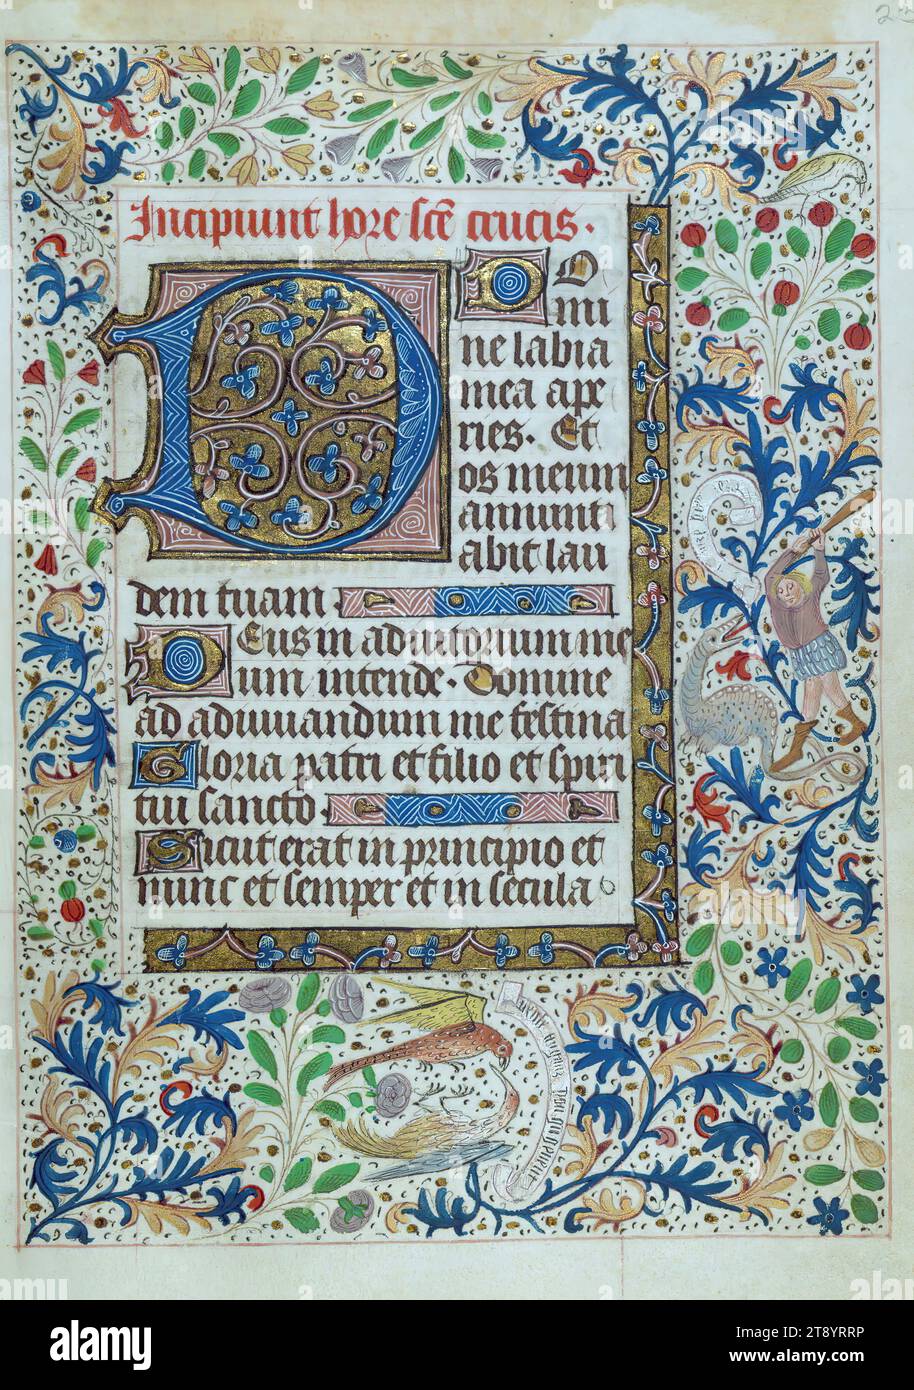 Incipiunt hore scē crucis.
DO
mi
ne labia
mea ape
ries. Et
os meum
annunti
abit lau
dem tuam.
Deus in adiutorium me
um intende. Domine
ad adiuuandum me festina
Gloria patri et filio et spiri
tui sancto
Sicut erat in principio et
nunc et semper et in secula
alamy
Image ID: 2T8YRRP
www.alamy.com